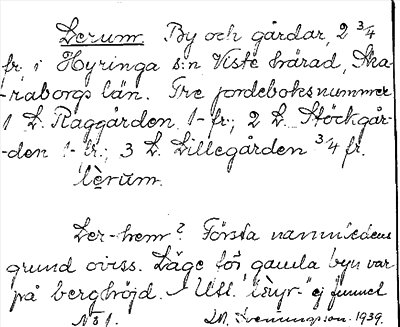 Lerum. By och gårdar, 2 3/4
fr. i Hyringa s:n Viste härad, Ska-
-raborgs län. Tre jordeboksnummer
1 L. Raggården 1- fr.; 2 L. Stöckgår-
-den 1- fr.; 3 L. Lillegården 3/4 fr.
lerum.
Ler-hem? Första namnledens
grund oviss. Läge för gamla byn var
på berghöjd. Utt. ej funnet
No 1. 1939.